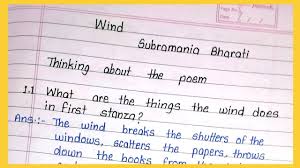 Wind
Subramania Bharati
Thinking about the poem
1.1 What are the things the wind does
in first stanza?
Ans:- The wind breaks the shutters of the
windows, scatters the papers, throws
down the books from the